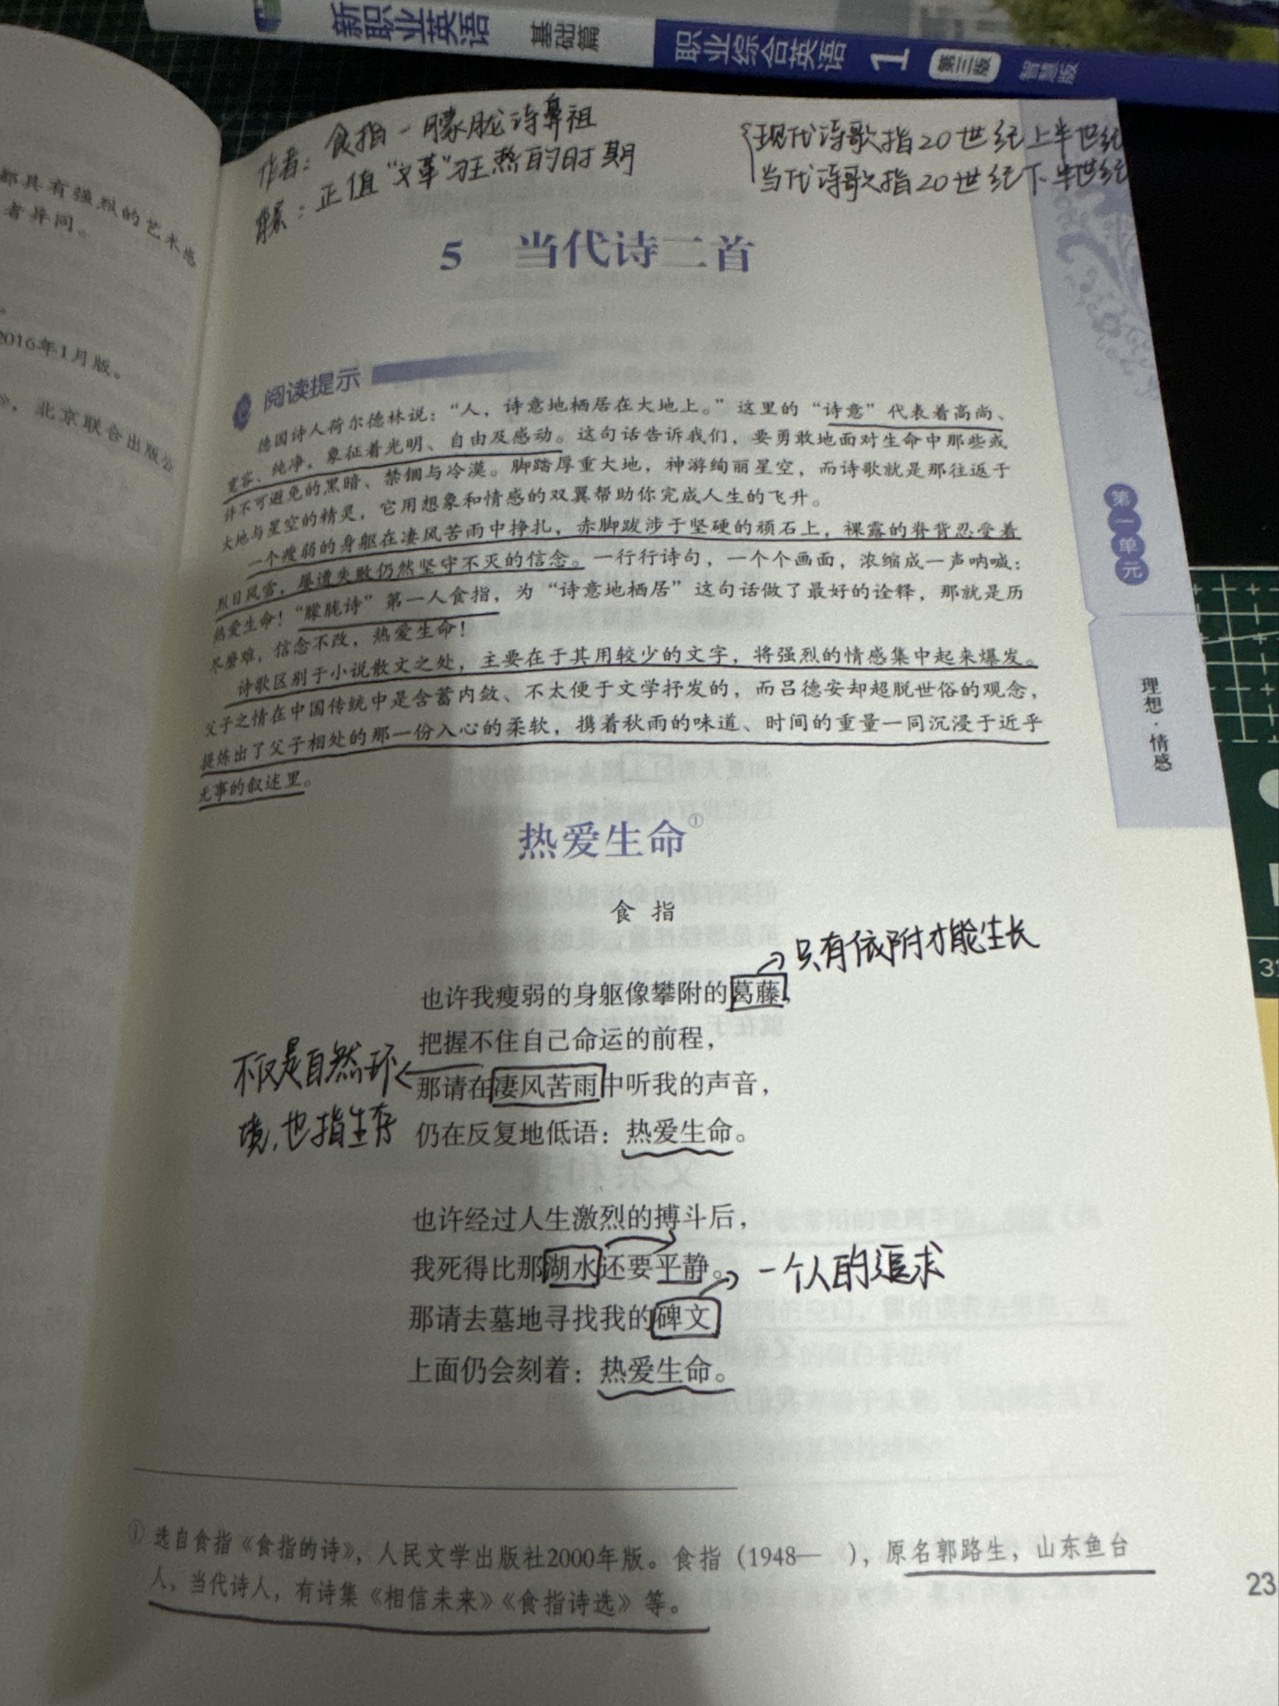 新职业英语 基础篇 职业综合英语 1 第三版 智慧版
都具有强烈的艺术感
者异同。
2016年1月版。
》，北京联合出版公
作者：食指－朦胧诗鼻祖
背景：正值“文革”狂热的时期
现代诗歌指20世纪上半世纪
当代诗歌指20世纪下半世纪
5 当代诗二首
阅读提示
德国诗人荷尔德林说：“人，诗意地栖居在大地上。”这里的“诗意”代表着高尚、
宽容、纯净，象征着光明、自由及感动。这句话告诉我们，要勇敢地面对生命中那些或
许不可避免的黑暗、禁锢与冷漠。脚踏厚重大地，神游绚丽星空，而诗歌就是那往返于
大地与星空的精灵，它用想象和情感的双翼帮助你完成人生的飞升。
一个瘦弱的身躯在凄风苦雨中挣扎，赤脚跋涉于坚硬的顽石上，裸露的脊背忍受着
烈日风雪，屡遭失败仍然坚守不灭的信念。一行行诗句，一个个画面，浓缩成一声呐喊：
热爱生命！“朦胧诗”第一人食指，为“诗意地栖居”这句话做了最好的诠释，那就是历
尽磨难，信念不改，热爱生命！
诗歌区别于小说散文之处，主要在于其用较少的文字，将强烈的情感集中起来爆发。
父子之情在中国传统中是含蓄内敛、不太便于文学抒发的，而吕德安却超脱世俗的观念，
提炼出了父子相处的那一份入心的柔软，携着秋雨的味道、时间的重量一同沉浸于近乎
无事的叙述里。
第一单元
理想·情感
热爱生命①
食 指
只有依附才能生长
也许我瘦弱的身躯像攀附的葛藤，
把握不住自己命运的前程，
那请在凄风苦雨中听我的声音，
仍在反复地低语：热爱生命。
不仅是自然环
境，也指生存
也许经过人生激烈的搏斗后，
我死得比那湖水还要平静。
那请去墓地寻找我的碑文
上面仍会刻着：热爱生命。
一个人的追求
① 选自食指《食指的诗》，人民文学出版社2000年版。食指（1948— ），原名郭路生，山东鱼台
人，当代诗人，有诗集《相信未来》《食指诗选》等。
23